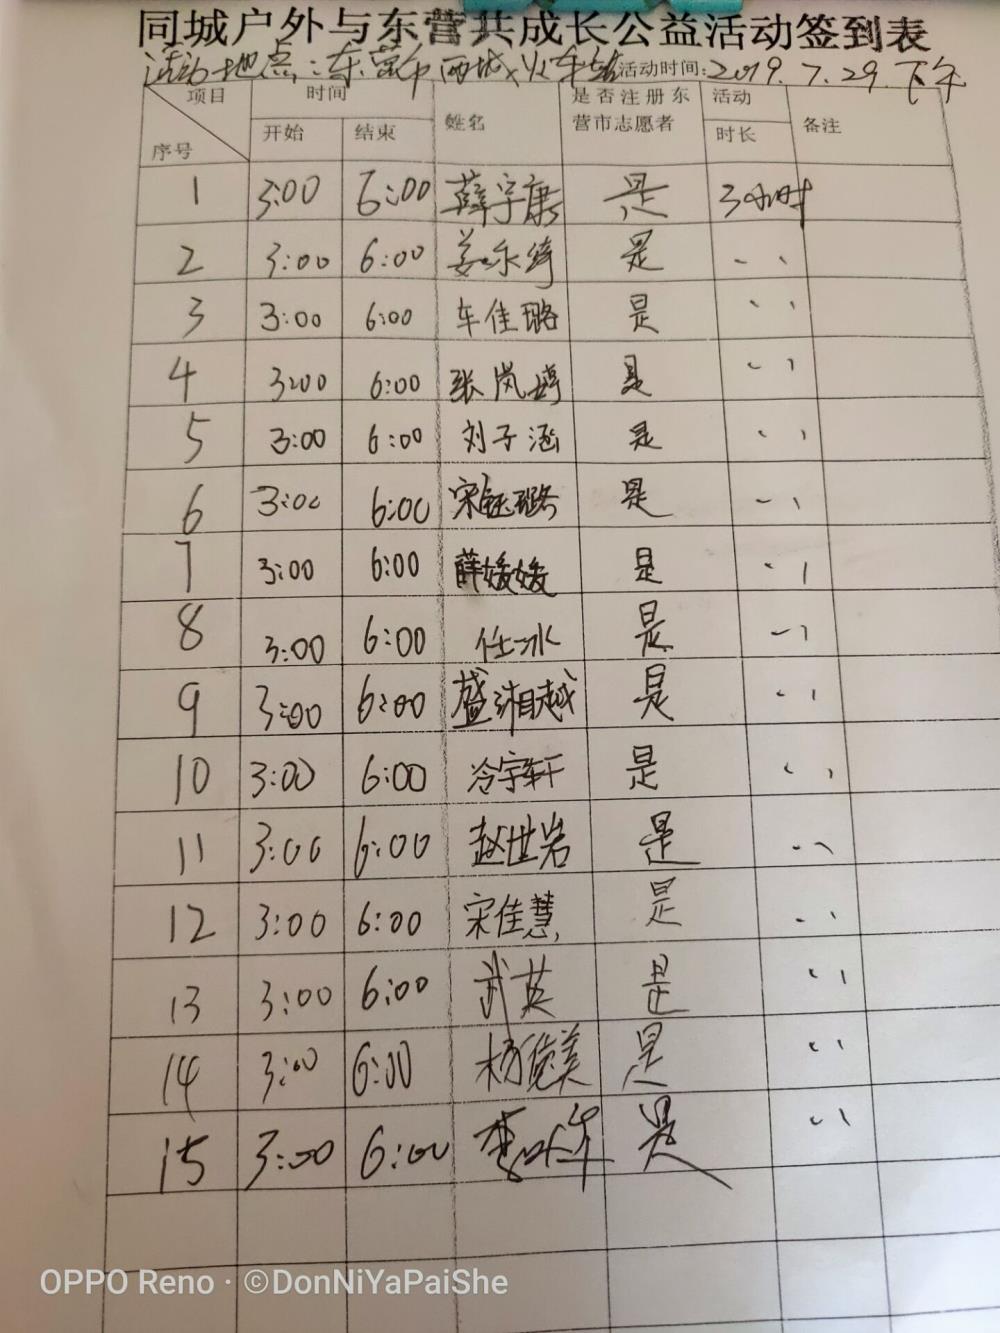 同城户外与东营共成长公益活动签到表
活动地点：东营市西城火车站 活动时间：2019.7.29.下午
项目 时间 姓名 是否注册东营市志愿者 活动时长 备注
序号 开始 结束
1 3:00 6:00 薛宇康 是 3小时
2 3:00 6:00 姜永绮 是 、、
3 3:00 6:00 车佳璐 是 、、
4 3:00 6:00 张岚婷 是 、、
5 3:00 6:00 刘子涵 是 、、
6 3:00 6:00 宋钰璐 是 、、
7 3:00 6:00 薛媛媛 是 、、
8 3:00 6:00 任一冰 是 、、
9 3:00 6:00 盛湘越 是 、、
10 3:00 6:00 冷宇轩 是 、、
11 3:00 6:00 赵世岩 是 、、
12 3:00 6:00 宋佳慧 是 、、
13 3:00 6:00 武英 是 、、
14 3:00 6:00 杨俊美 是 、、
15 3:00 6:00 李 是 、、
OPPO Reno · ©DonNiYaPaiShe